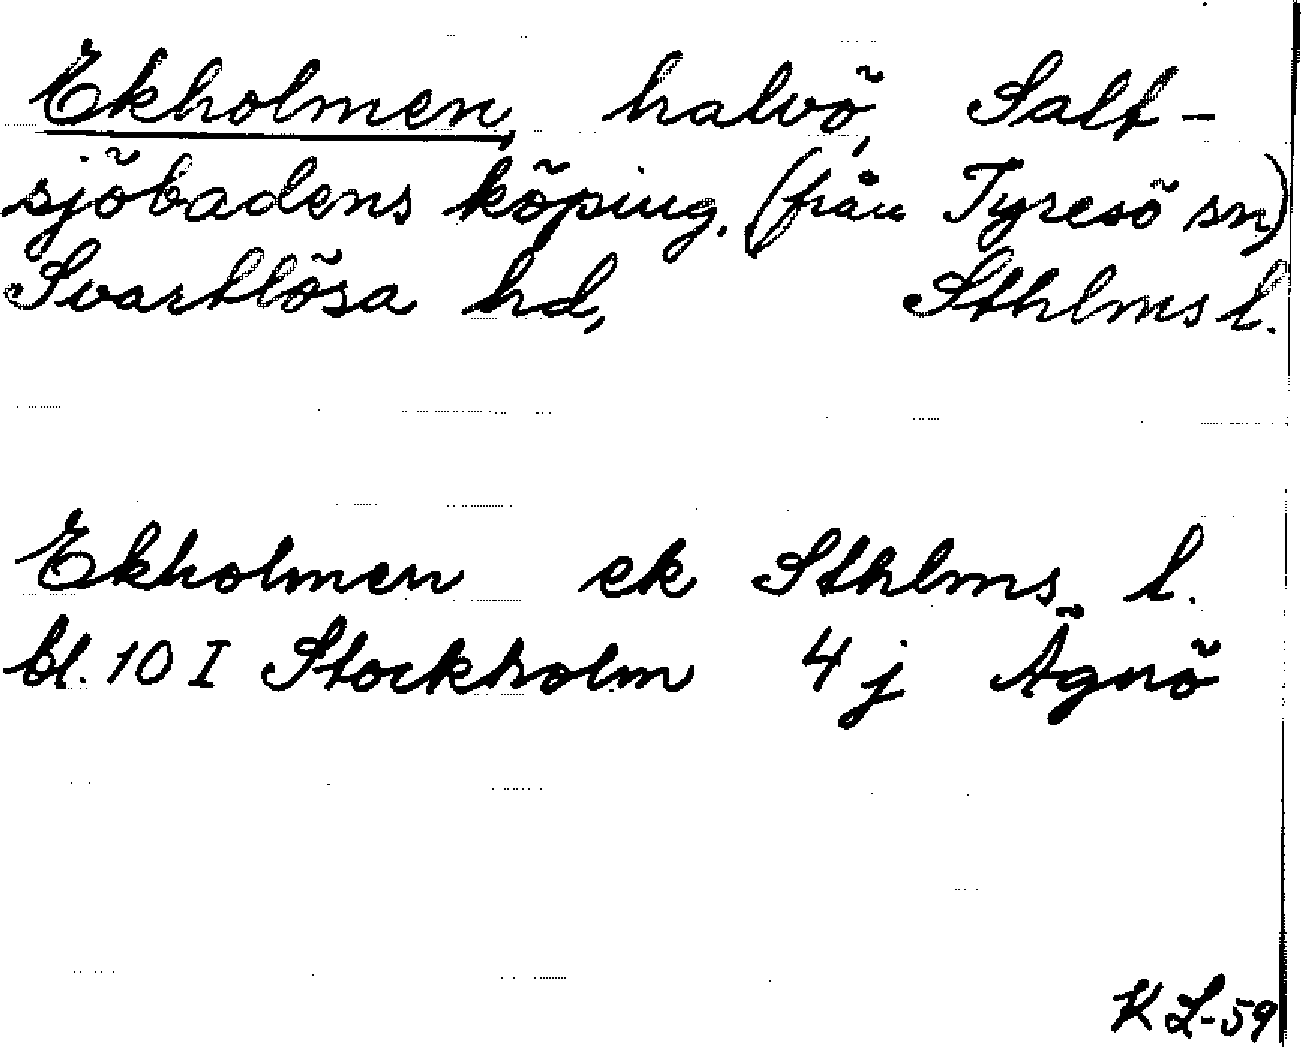 Ekholmen, halvö, Salt-
sjöbadens köping. (från Tyresö sn)
Svartlösa hd, Sthlms l.
Ekholmen ek Sthlms l.
bl. 10 I Stockholm 4 j Ägnö
KL-59